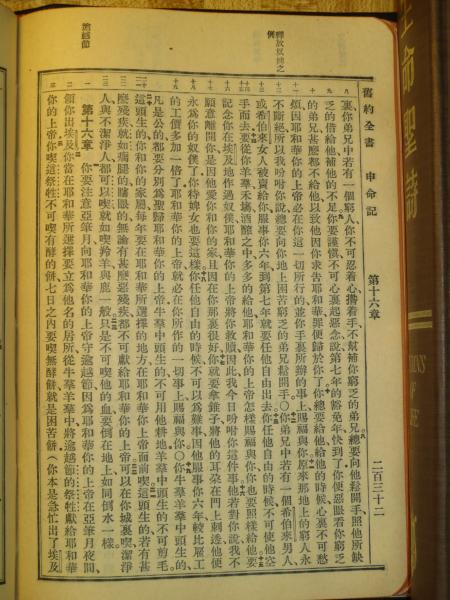 釋放奴僕之例
逾越節
舊約全書 申命記 第十六章 二百三十二
裏你弟兄中若有一個窮人你不可忍着心揝着手不幫補你窮乏的弟兄總要向他鬆開手照他所缺
乏的借給他補他的不足你要謹慎不可心裏起惡念說第七年的豁免年快到了你便惡眼看你窮乏
的弟兄甚麽都不給他以致他因你求告耶和華罪便歸於你了你總要給他給他的時候心裏不可愁
煩因耶和華你的上帝必在你這一切所行的並你手裏所辦的事上賜福與你原來那地上的窮人永
不斷絕所以我吩咐你說總要向你地上困苦窮乏的弟兄鬆開手〇你弟兄中若有一個希伯來男人
或希伯來女人被賣給你服事你六年到第七年就要任他自由出去你任他自由的時候不可使他空
手而去要從你羊羣禾場酒醡之中多多的給他耶和華你的上帝怎樣賜福與你你也要照樣給他要
記念你在埃及地作過奴僕耶和華你的上帝將你救贖因此我今日吩咐你這件事他若對你說我不
願意離開你是因他愛你和你的家且因在你那裏很好你就要拿錐子將他的耳朵在門上刺透他便
永爲你的奴僕了你待婢女也要這樣你任他自由的時候不可以爲難事因他服事你六年較比雇工
的工價多加一倍了耶和華你的上帝就必在你所作的一切事上賜福與你〇你牛羣羊羣中頭生的
凡是公的都要分別爲聖歸耶和華你的上帝牛羣中頭生的不可用他耕地羊羣中頭生的不可剪毛
這頭生的你和你的家屬每年要在耶和華所選擇的地方在耶和華你上帝面前喫這頭生的若有甚
麽殘疾就如瘸腿的瞎眼的無論有甚麽惡殘疾都不可獻給耶和華你的上帝可以在你城裏喫潔淨
人與不潔淨人都可以喫就如喫羚羊與鹿一般只是不可喫他的血要倒在地上如同倒水一樣
第十六章 你要注意亞筆月向耶和華你的上帝守逾越節因爲耶和華你的上帝在亞筆月夜間
領你出埃及你當在耶和華所選擇要立爲他名的居所從牛羣羊羣中將逾越節的祭牲獻給耶和華
你的上帝你喫這祭牲不可喫有酵的餅七日之內要喫無酵餅就是困苦餅(你本是急忙出了埃及